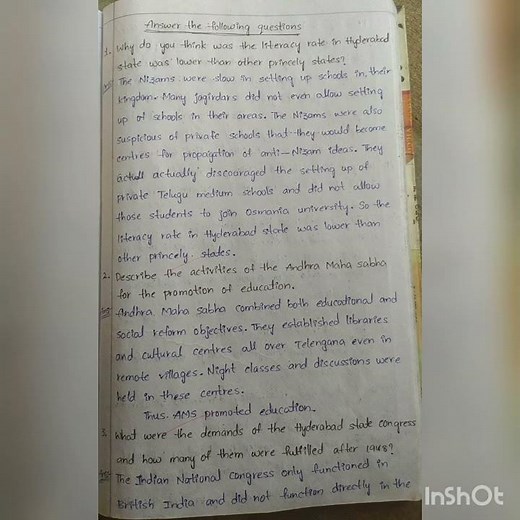 Answer the following questions
1. Why do you think was the literacy rate in Hyderabad
state was lower than other princely states?
Ans: The Nizams were slow in setting up schools in their
kingdom. Many jagirdars did not even allow setting
up of schools in their areas. The Nizams were also
suspicious of private schools that they would become
centres for propagation of anti-Nizam ideas. They
actuall actually discouraged the setting up of
private Telugu medium schools and did not allow
those students to join Osmania university. So the
literacy rate in Hyderabad state was lower than
other princely states.
2. Describe the activities of the Andhra Maha sabha
for the promotion of education.
Ans: Andhra Maha sabha combined both educational and
social reform objectives. They established libraries
and cultural centres all over Telengana even in
remote villages. Night classes and discussions were
held in these centres.
Thus. AMS promoted education.
3. What were the demands of the Hyderabad state congress
and how many of them were fulfilled after 1948?
Ans: The Indian National congress only functioned in
British India and did not function directly in the
InShOt